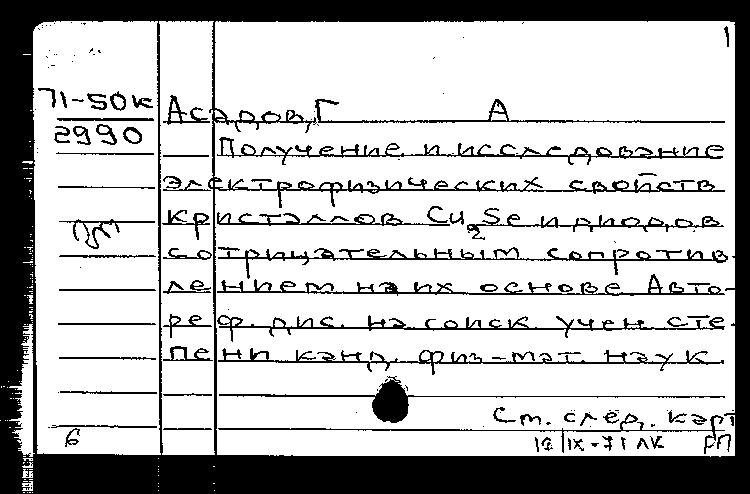 1
71-50к
2990
Асадов, Г А
Получение и исследование
электрофизических свойств
кристаллов Cu2Se и диодов
с отрицательным сопротив-
лением на их основе. Авто-
реф. дис. на соиск. учен. сте-
пени канд. физ-мат. наук.
См. след. карт
6
IX-71 ЛК РП